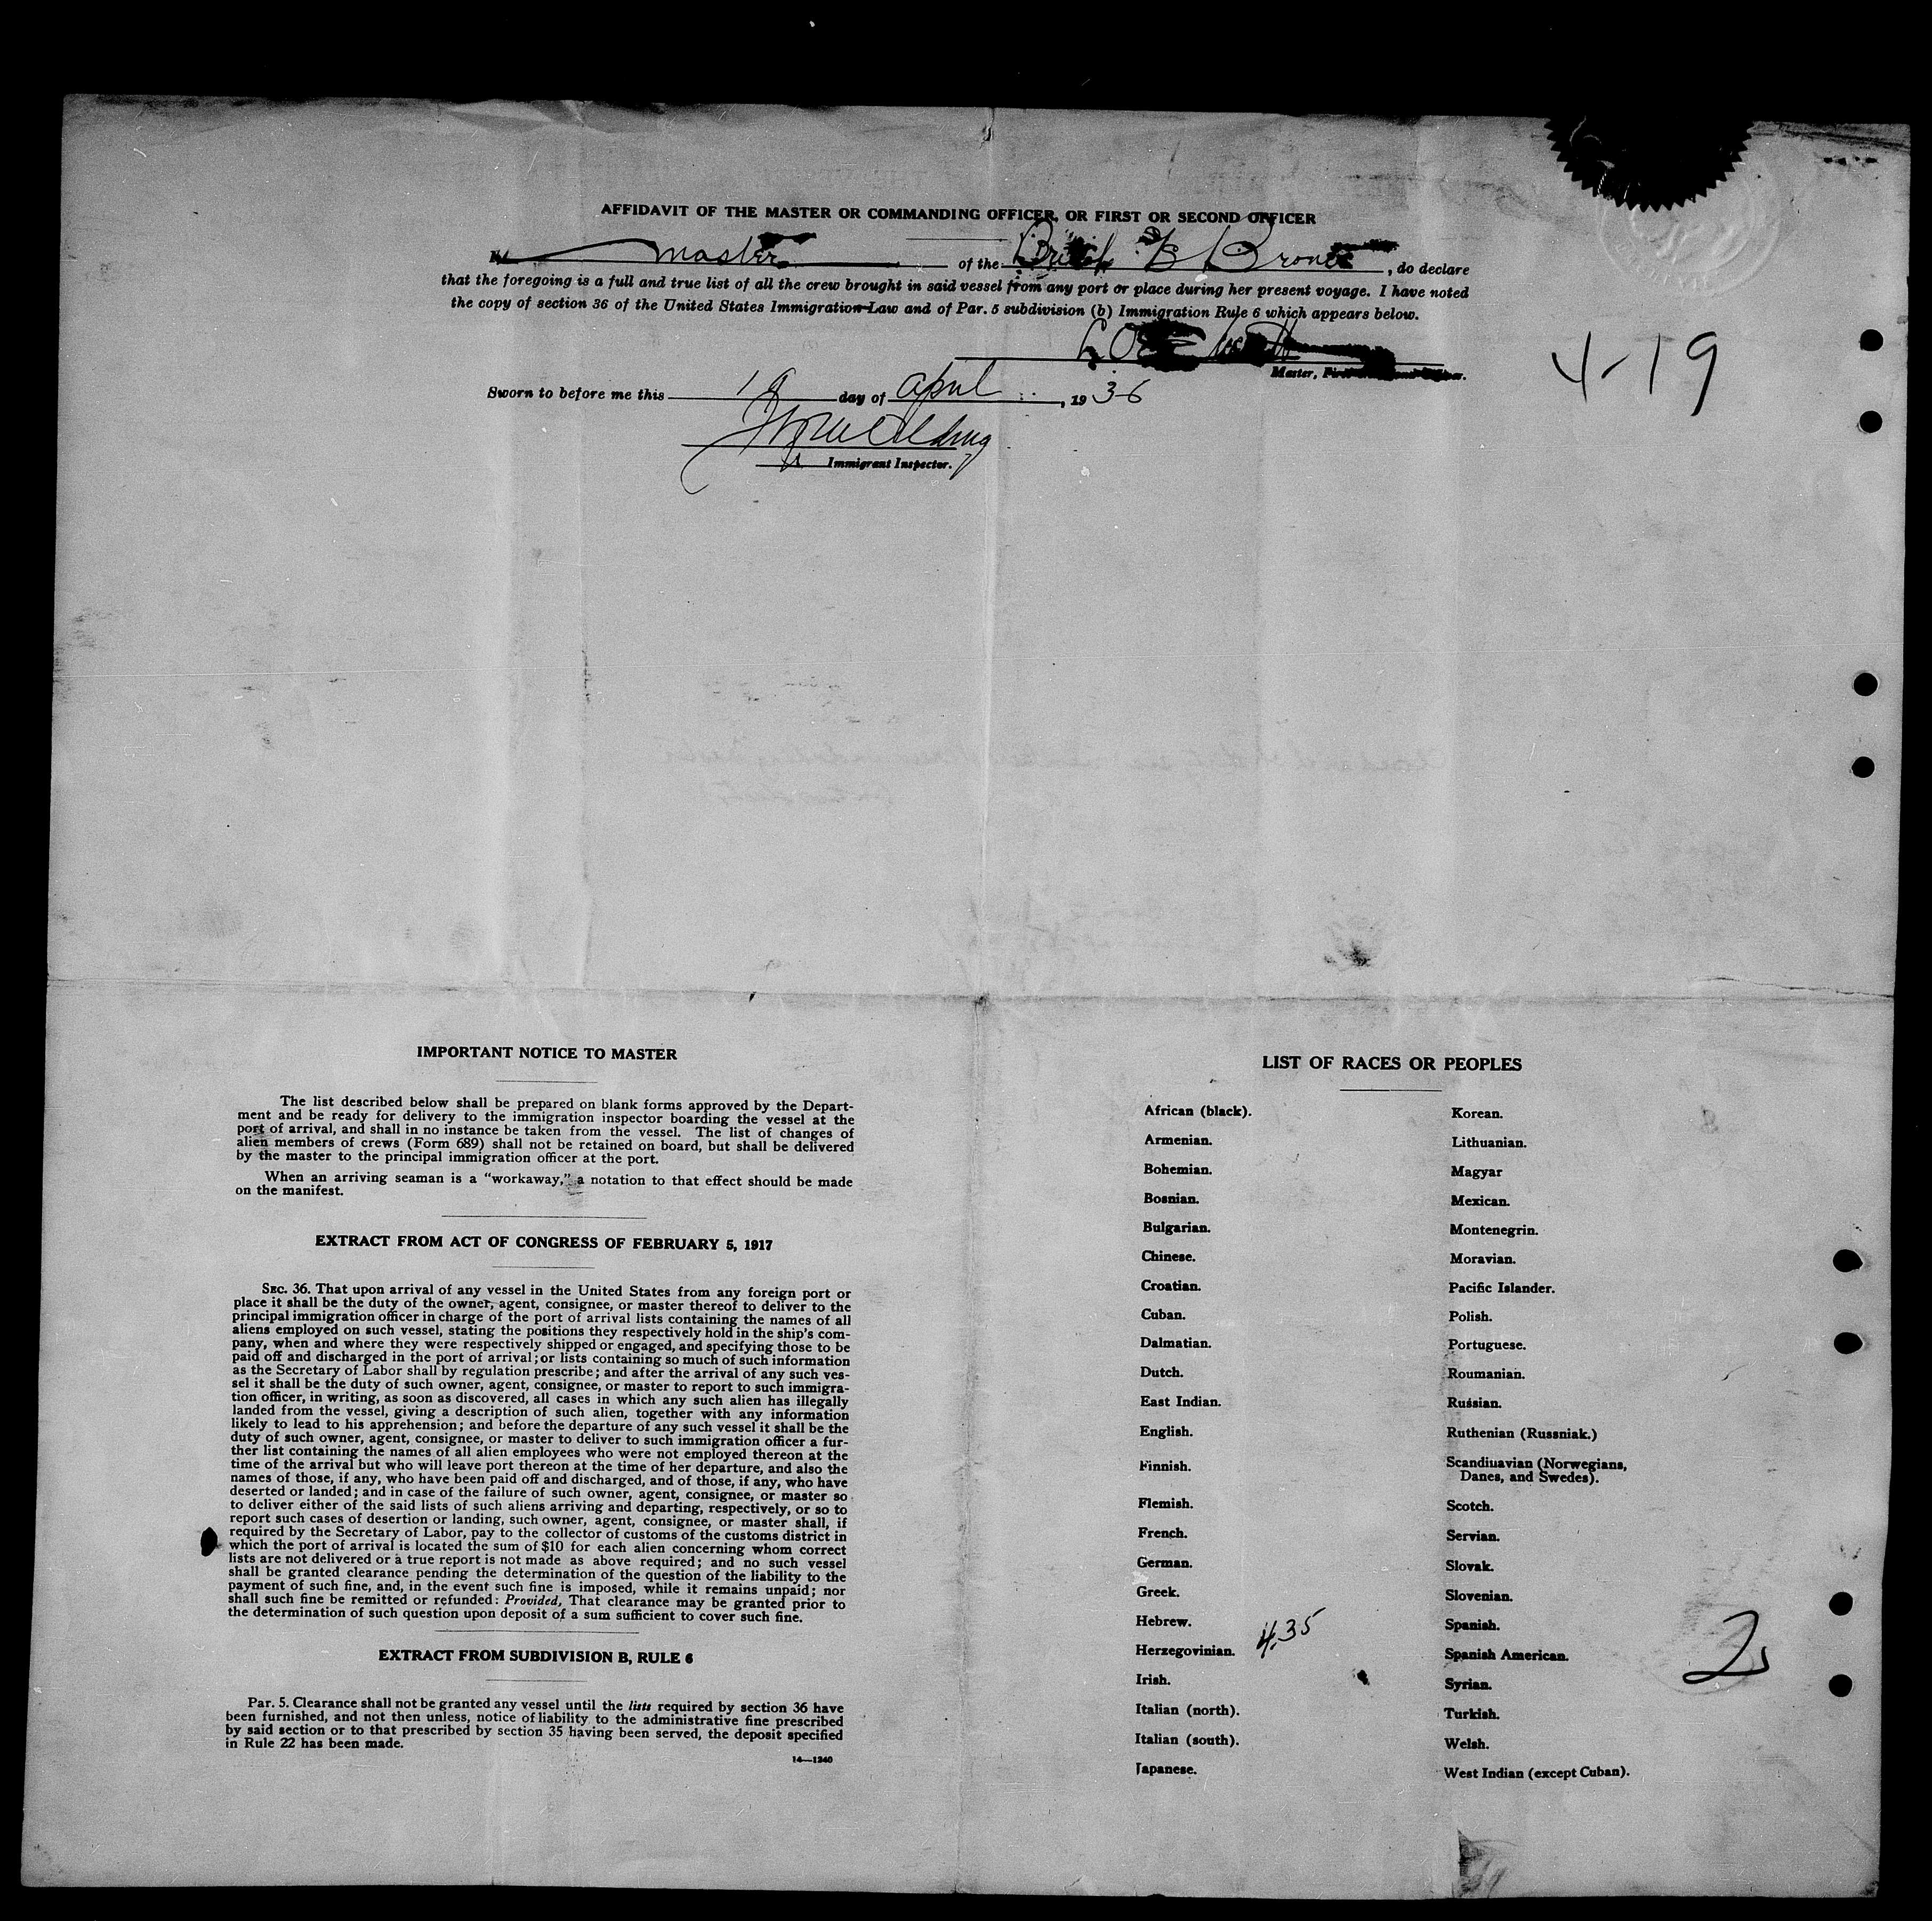 AFFIDAVIT OF THE MASTER OR COMMANDING OFFICER, OR FIRST OR SECOND OFFICER
master of the British , do declare
that the foregoing is a full and true list of all the crew brought in said vessel from any port or place during her present voyage. I have noted
the copy of section 36 of the United States Immigration Law and of Par. 5 subdivision (b) Immigration Rule 6 which appears below.
Master, First or Second Officer.
4-19
Sworn to before me this 19 day of April, 1936
Immigrant Inspector.
IMPORTANT NOTICE TO MASTER
The list described below shall be prepared on blank forms approved by the Depart-
ment and be ready for delivery to the immigration inspector boarding the vessel at the
port of arrival, and shall in no instance be taken from the vessel. The list of changes of
alien members of crews (Form 689) shall not be retained on board, but shall be delivered
by the master to the principal immigration officer at the port.
When an arriving seaman is a "workaway," a notation to that effect should be made
on the manifest.
EXTRACT FROM ACT OF CONGRESS OF FEBRUARY 5, 1917
SEC. 36. That upon arrival of any vessel in the United States from any foreign port or
place it shall be the duty of the owner, agent, consignee, or master thereof to deliver to the
principal immigration officer in charge of the port of arrival lists containing the names of all
aliens employed on such vessel, stating the positions they respectively hold in the ship's com-
pany, when and where they were respectively shipped or engaged, and specifying those to be
paid off and discharged in the port of arrival; or lists containing so much of such information
as the Secretary of Labor shall by regulation prescribe; and after the arrival of any such ves-
sel it shall be the duty of such owner, agent, consignee, or master to report to such immigra-
tion officer, in writing, as soon as discovered, all cases in which any such alien has illegally
landed from the vessel, giving a description of such alien, together with any information
likely to lead to his apprehension; and before the departure of any such vessel it shall be the
duty of such owner, agent, consignee, or master to deliver to such immigration officer a fur-
ther list containing the names of all alien employees who were not employed thereon at the
time of the arrival but who will leave port thereon at the time of her departure, and also the
names of those, if any, who have been paid off and discharged, and of those, if any, who have
deserted or landed; and in case of the failure of such owner, agent, consignee, or master so
to deliver either of the said lists of such aliens arriving and departing, respectively, or so to
report such cases of desertion or landing, such owner, agent, consignee, or master shall, if
required by the Secretary of Labor, pay to the collector of customs of the customs district in
which the port of arrival is located the sum of $10 for each alien concerning whom correct
lists are not delivered or a true report is not made as above required; and no such vessel
shall be granted clearance pending the determination of the question of the liability to the
payment of such fine, and, in the event such fine is imposed, while it remains unpaid; nor
shall such fine be remitted or refunded: Provided, That clearance may be granted prior to
the determination of such question upon deposit of a sum sufficient to cover such fine.
EXTRACT FROM SUBDIVISION B, RULE 6
Par. 5. Clearance shall not be granted any vessel until the lists required by section 36 have
been furnished, and not then unless, notice of liability to the administrative fine prescribed
by said section or to that prescribed by section 35 having been served, the deposit specified
in Rule 22 has been made.
14—1240
LIST OF RACES OR PEOPLES
African (black).
Armenian.
Bohemian.
Bosnian.
Bulgarian.
Chinese.
Croatian.
Cuban.
Dalmatian.
Dutch.
East Indian.
English.
Finnish.
Flemish.
French.
German.
Greek.
Hebrew.
Herzegovinian.
Irish.
Italian (north).
Italian (south).
Japanese.
435
Korean.
Lithuanian.
Magyar
Mexican.
Montenegrin.
Moravian.
Pacific Islander.
Polish.
Portuguese.
Roumanian.
Russian.
Ruthenian (Russniak.)
Scandinavian (Norwegians,
Danes, and Swedes).
Scotch.
Servian.
Slovak.
Slovenian.
Spanish.
Spanish American.
Syrian.
Turkish.
Welsh.
West Indian (except Cuban).
2